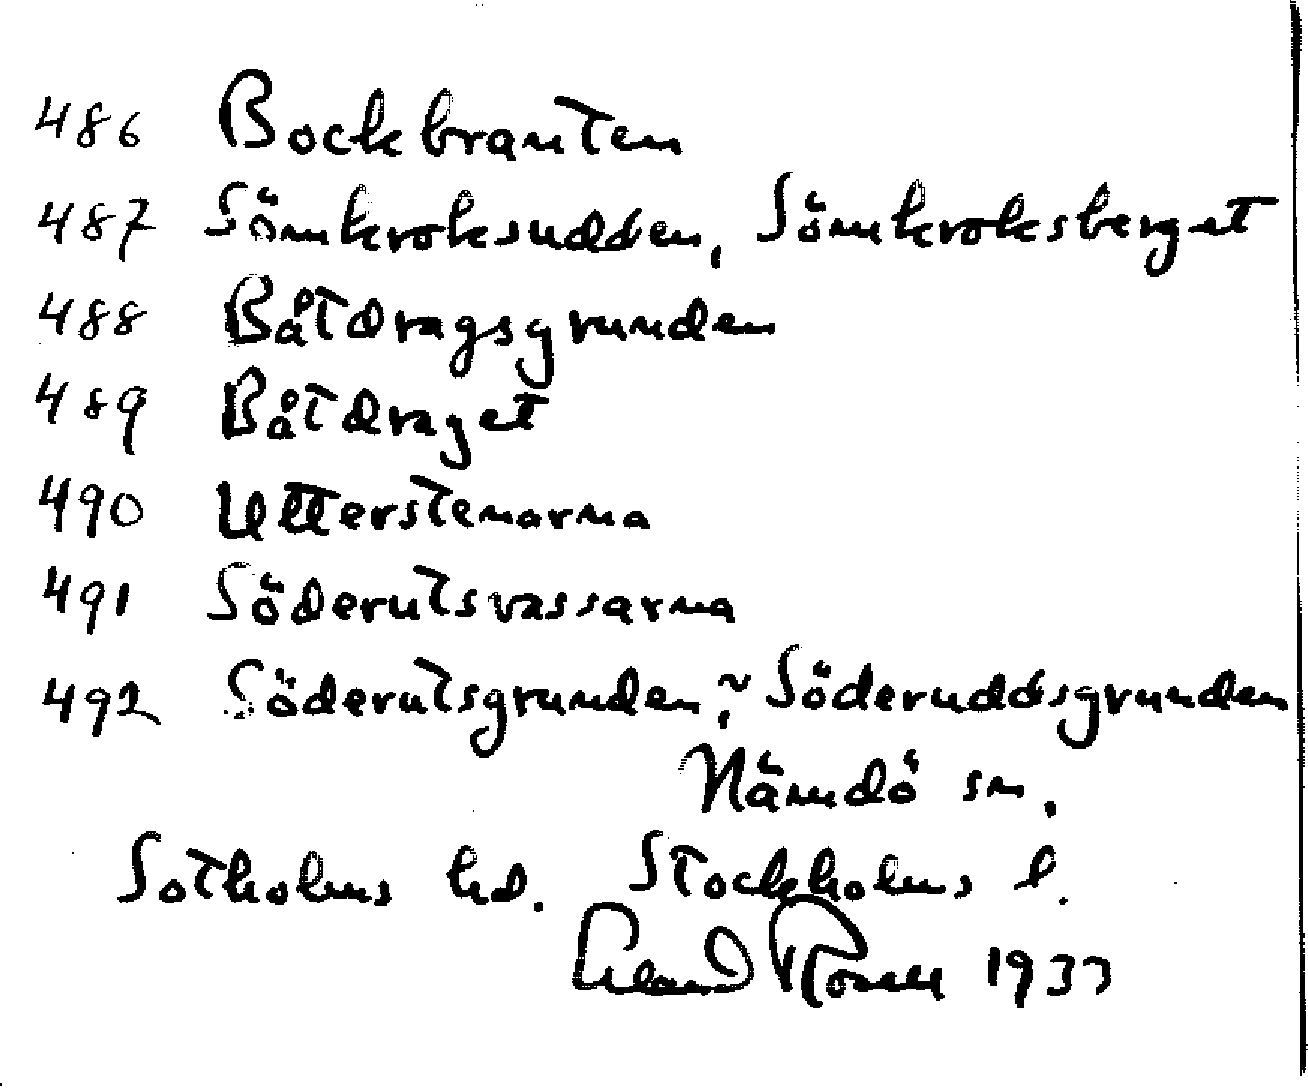 486 Bockbranten
487 Sömkroksudden, Sömkroksberget
488 Båtdragsgrunden
489 Båtdraget
490 Utterstenarna
491 Söderutsvassarna
492 Söderutsgrunden, ~ Söderuddsgrunden
Nämdö sn.
Sotholms hd. Stockholms l.
1933